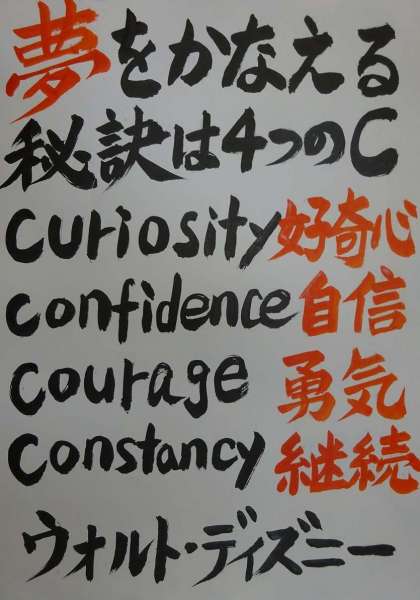 夢をかなえる
秘訣は4つのC
curiosity好奇心
confidence自信
courage 勇気
constancy 継続
ウォルト・ディズニー